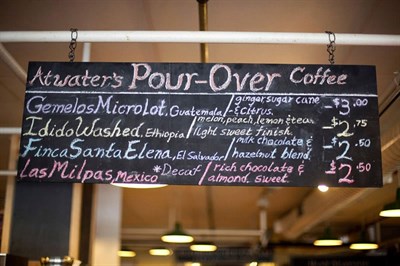 Atwater's Pour-Over Coffee
Gemelos MicroLot, Guatemala / ginger sugar cane & citrus. $3.00
Idido Washed, Ethiopia / melon, peach, lemon & tea light sweet finish. $2.75
Finca Santa Elena, El Salvador / milk chocolate & hazelnut blend. $2.50
Las Milpas, Mexico *Decaf / rich chocolate & almond, sweet. $2.50